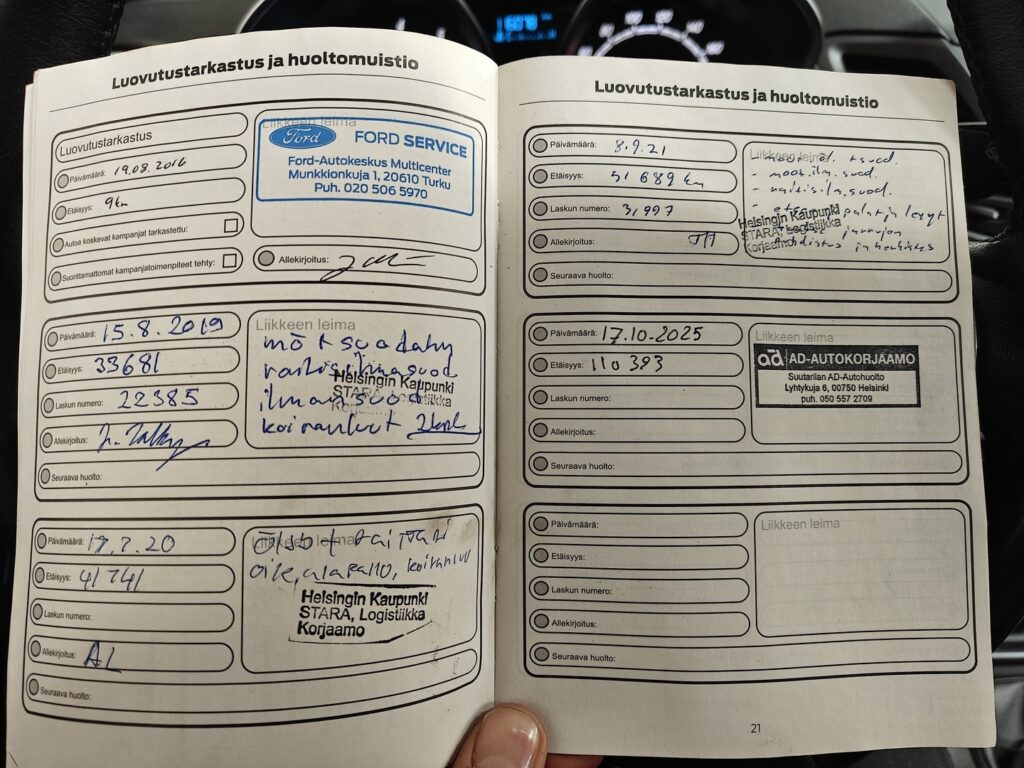 Luovutustarkastus ja huoltomuistio
Luovutustarkastus
Päivämäärä: 19.08.2016
Etäisyys: 9 km
Autoa koskevat kampanjat tarkastettu:
Suorittamattomat kampanjatoimenpiteet tehty:
Liikkeen leima
Ford FORD SERVICE
Ford-Autokeskus Multicenter
Munkkionkuja 1, 20610 Turku
Puh. 020 506 5970
Allekirjoitus:
Päivämäärä: 15.8.2019
Etäisyys: 33681
Laskun numero: 22385
Allekirjoitus:
Seuraava huolto:
Liikkeen leima
Helsingin Kaupunki
STARA, Logistiikka
Korjaamo
Päivämäärä: 17.7.20
Etäisyys: 41741
Laskun numero:
Allekirjoitus: AL
Seuraava huolto:
Liikkeen leima
Helsingin Kaupunki
STARA, Logistiikka
Korjaamo
Luovutustarkastus ja huoltomuistio
Päivämäärä: 8.9.21
Etäisyys: 51689 km
Laskun numero: 31997
Allekirjoitus:
Seuraava huolto:
Liikkeen leima
- moot.ilm.suod.
Helsingin Kaupunki
STARA, Logistiikka
Korjaamo
Päivämäärä: 17.10.2025
Etäisyys: 110 393
Laskun numero:
Allekirjoitus:
Seuraava huolto:
Liikkeen leima
ad AD-AUTOKORJAAMO
Suutarilan AD-Autohuolto
Lyhtykuja 6, 00750 Helsinki
puh. 050 557 2709
Päivämäärä:
Etäisyys:
Laskun numero:
Allekirjoitus:
Seuraava huolto:
Liikkeen leima
21